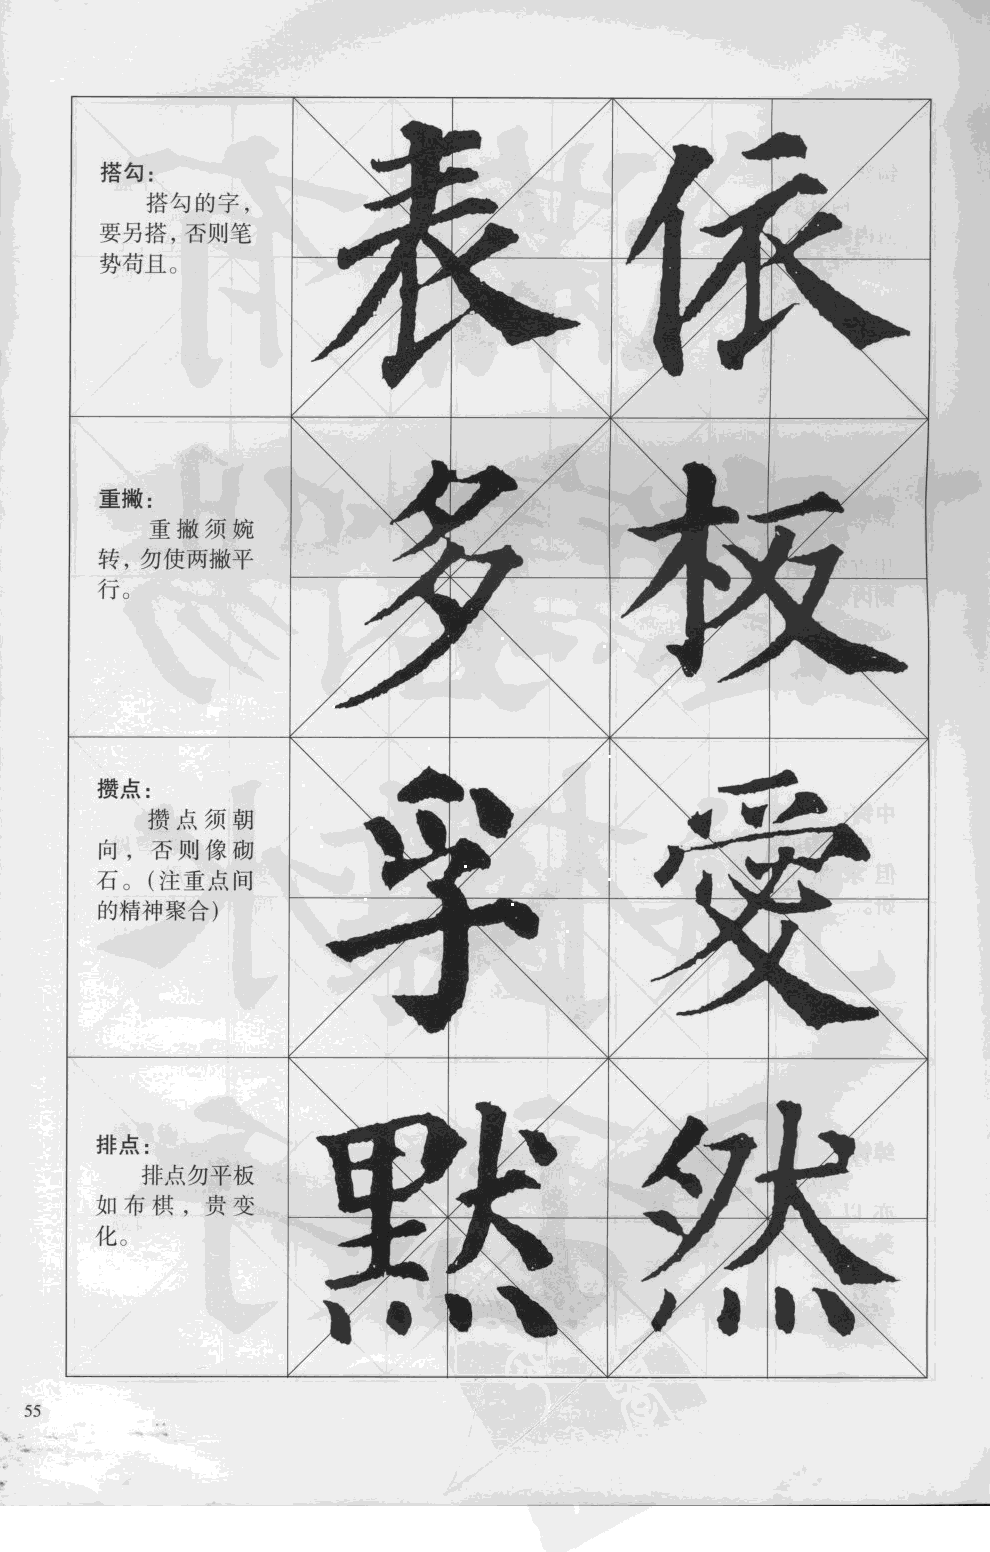 搭勾：
搭勾的字，
要另搭，否则笔
势苟且。
表 依
重撇：
重撇须婉
转，勿使两撇平
行。
多 板
攒点：
攒点须朝
向，否则像砌
石。（注重点间
的精神聚合）
孚 愛
排点：
排点勿平板
如布棋，贵变
化。
默 然
55